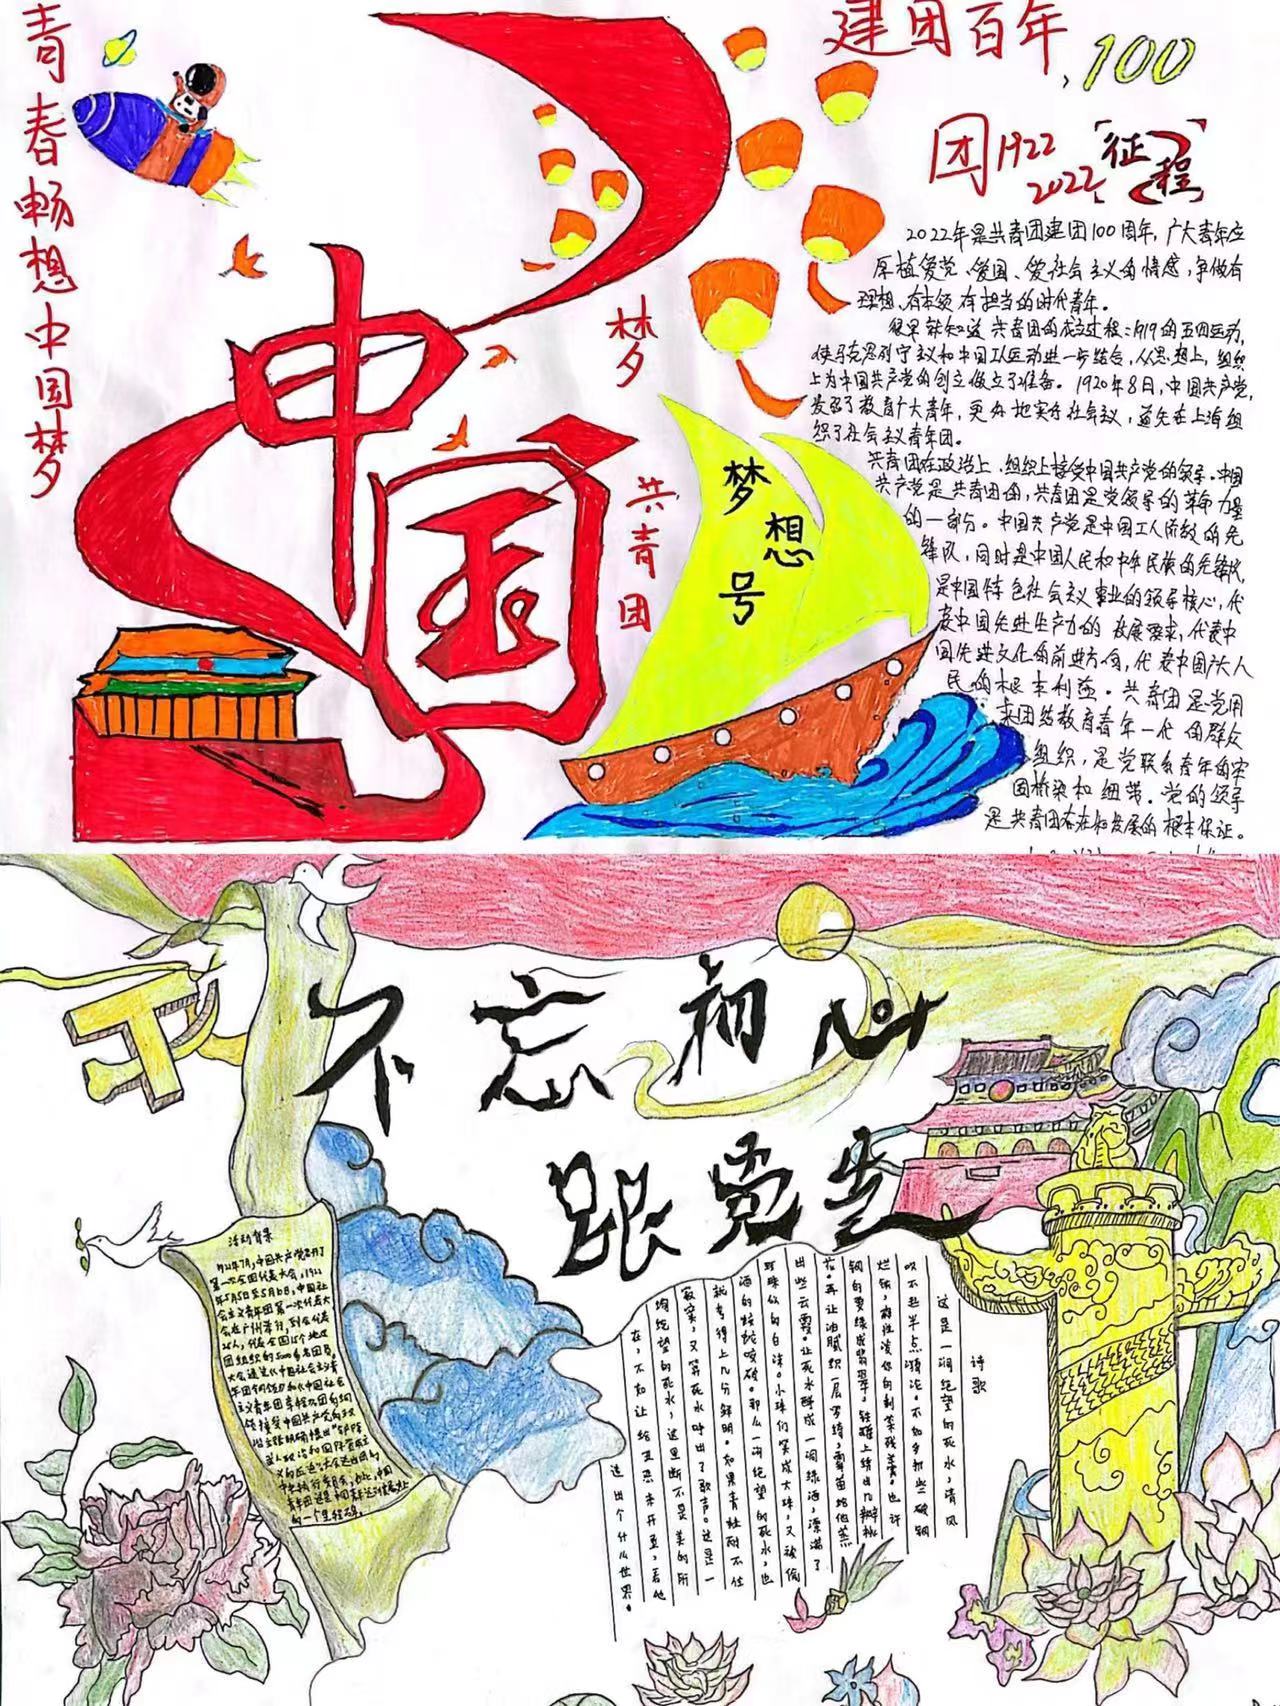 青春畅想中国梦
中国
梦
共青团
梦想号
建团百年，100
团1922
2022
征程
2022年是共青团建团100周年，广大青年应
厚植爱党、爱国、爱社会主义的情感，争做有
理想、有本领、有担当的时代青年。
很早就知道共青团的成立过程：1919的五四运动，
使马克思列宁主义和中国工人运动进一步结合，从思想上，组织
上为中国共产党的创立做了准备。1920年8月，中国共产党，
发起了教育广大青年，更好地实行社会主义，首先在上海组
织了社会主义青年团。
共青团在政治上、组织上接受中国共产党的领导。中国
共产党是共青团的，共青团是党领导的革命力量
的一部分。中国共产党是中国工人阶级的先
锋队，同时是中国人民和中华民族的先锋队，
是中国特色社会主义事业的领导核心，代
表中国先进生产力的发展要求，代表中
国先进文化的前进方向，代表中国广大人
民的根本利益。共青团是党用
来团结教育青年一代的群众
组织，是党联系青年的牢
固桥梁和纽带。党的领导
是共青团存在和发展的根本保证。
不忘初心
跟党走
活动背景
1921年7月，中国共产党召开了
第一次全国代表大会，1922
年5月5日至5月10日，中国社
会主义青年团第一次代表大
会在广州举行，到会代表
25人，代表全国15个地区
团组织的5000多名团员。
大会通过《中国社会主义青
年团的纲领》和《中国社会
主义青年团章程》
的一个里程碑。
诗歌
这是一沟绝望的死水，清风
吹不起半点漪沦。不如多扔些破铜
烂铁，爽性泼你的剩菜残羹。也许
铜的要绿成翡翠，铁罐上锈出几瓣桃
花。再让油腻织一层罗绮，霉菌给他蒸
出些云霞。让死水酵成一沟绿酒，漂满了
珍珠似的白沫。小珠们笑成大珠，又被偷
酒的蚊蚊咬破。那么一沟绝望的死水，也
就夸得上几分鲜明。如果青蛙耐不住
寂寞，又算死水叫出了歌声。这是一
沟绝望的死水，这里断不是美的所
在，不如让给丑恶来开垦，看他
造出个什么世界。